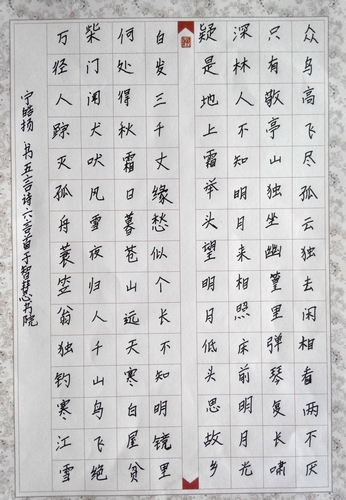 众鸟高飞尽孤云独去闲相看两不厌
只有敬亭山独坐幽篁里弹琴复长啸
深林人不知明月来相照床前明月光
疑是地上霜举头望明月低头思故乡
白发三千丈缘愁似个长不知明镜里
何处得秋霜日暮苍山远天寒白屋贫
柴门闻犬吠风雪夜归人千山鸟飞绝
万径人踪灭孤舟蓑笠翁独钓寒江雪
宁皓扬 书五言诗六言首于智慧书院